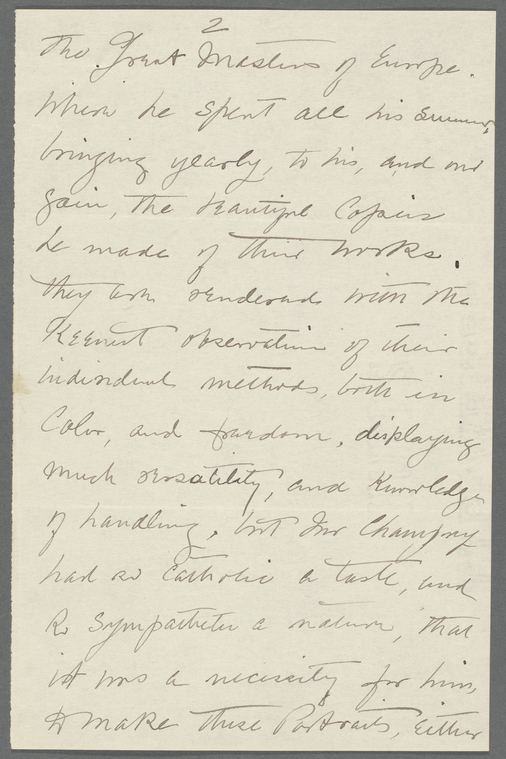 2
the Great Masters of Europe.
Where he spent all his Summers,
bringing yearly, to his, and our
gain, the beautiful Copies
he made of their works.
they are rendered with the
Keenest observation of their
individual methods, both in
Color, and freedom, displaying
much versatility, and Knowledge
of handling, but Mr Champney
had so Catholic a taste, and
so sympathetic a nature, that
it was a necessity for him,
to make these Portraits, either